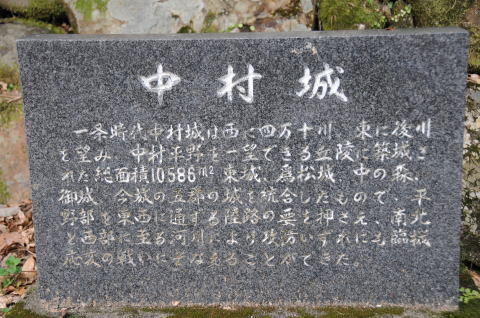 中村城
一条時代中村城は西に四万十川、東に後川
を望み、中村平野を一望できる丘陵に築城さ
れた総面積10586m2東城、為松城、中の森、
御城、今城の五郡の城を統合したもので、平
野部を東西に通する陸路の要を押さえ、南北
と西部に至る河川により攻防いずれにも臨機
応変の戦いにそなえることができた。